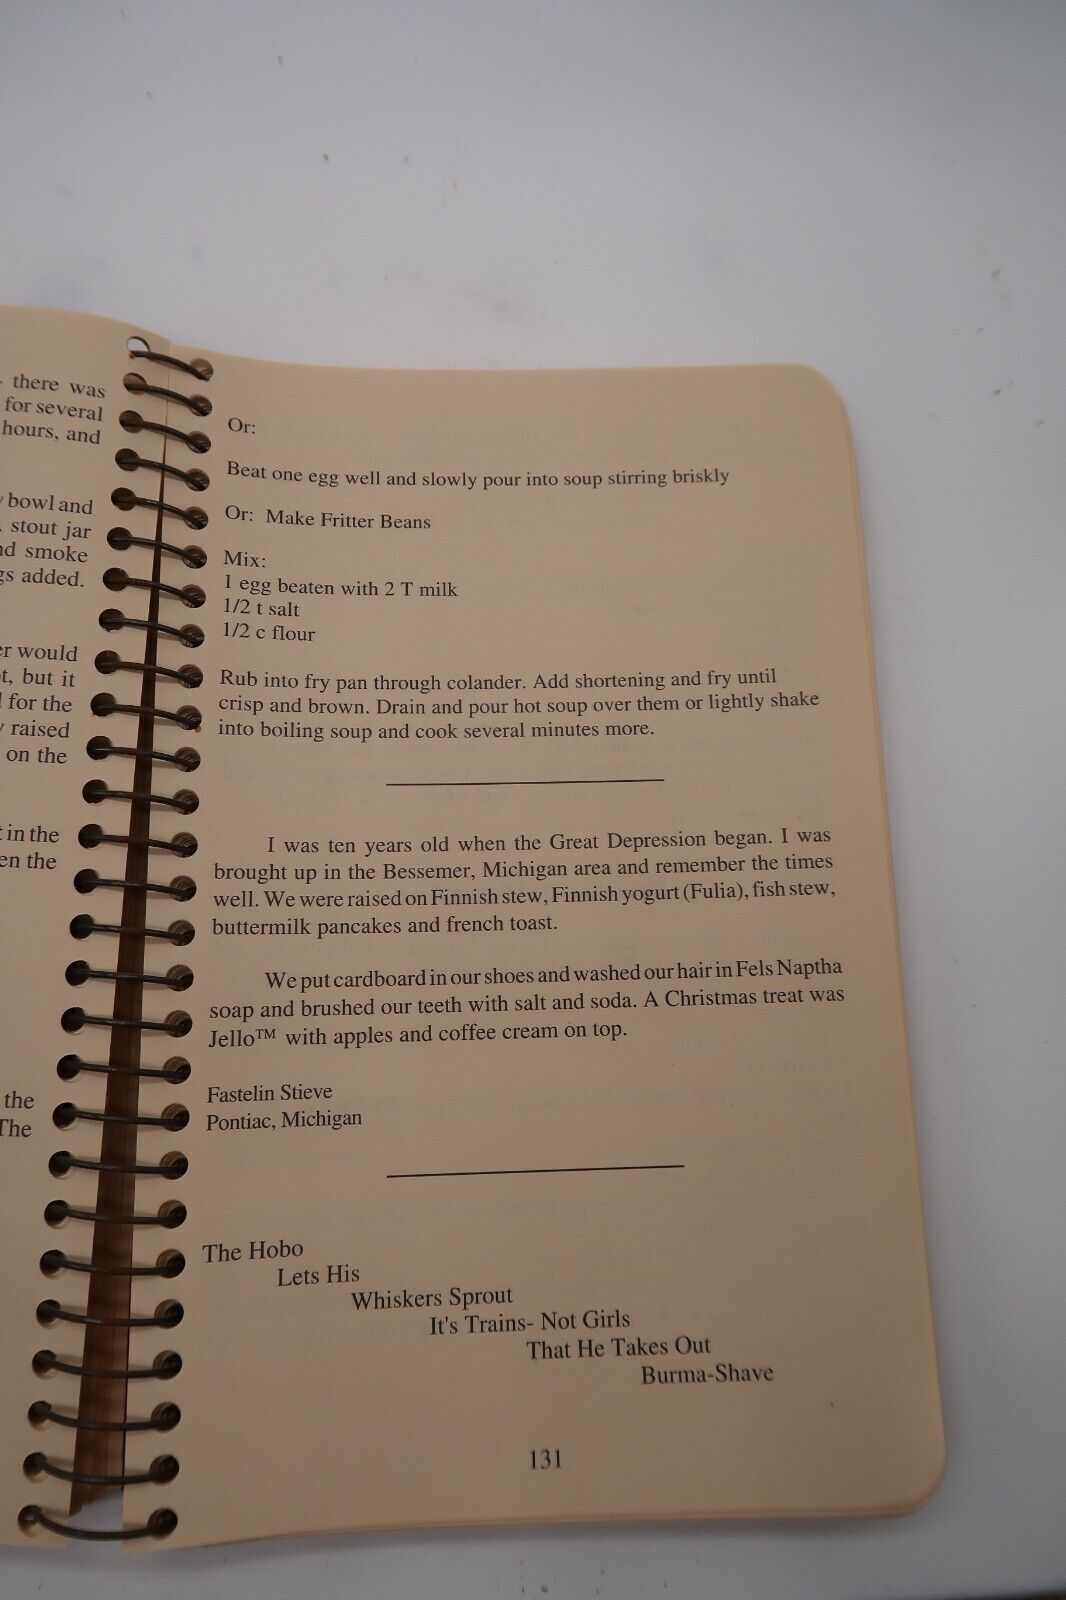 there was
for several
hours, and
bowl and
stout jar
smoke
added.
would
but it
for the
raised
on the
in the
the
the
The
Or:
Beat one egg well and slowly pour into soup stirring briskly
Or: Make Fritter Beans
Mix:
1 egg beaten with 2 T milk
1/2 t salt
1/2 c flour
Rub into fry pan through colander. Add shortening and fry until
crisp and brown. Drain and pour hot soup over them or lightly shake
into boiling soup and cook several minutes more.
I was ten years old when the Great Depression began. I was
brought up in the Bessemer, Michigan area and remember the times
well. We were raised on Finnish stew, Finnish yogurt (Fulia), fish stew,
buttermilk pancakes and french toast.
We put cardboard in our shoes and washed our hair in Fels Naptha
soap and brushed our teeth with salt and soda. A Christmas treat was
Jello™ with apples and coffee cream on top.
Fastelin Stieve
Pontiac, Michigan
The Hobo
Lets His
Whiskers Sprout
It's Trains- Not Girls
That He Takes Out
Burma-Shave
131